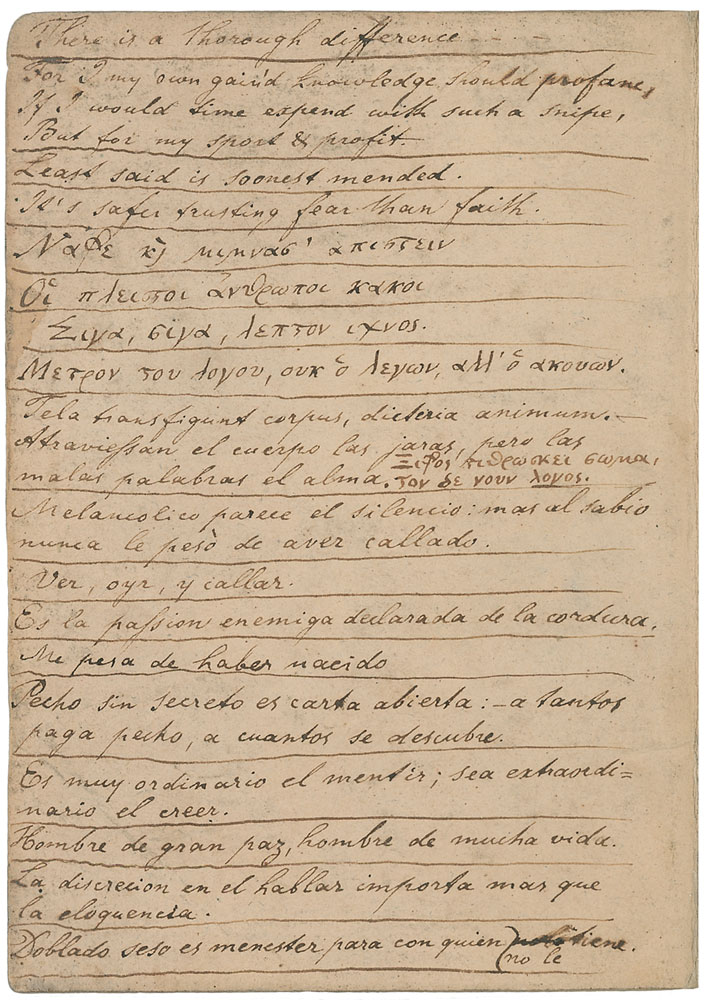 There is a thorough difference
For I my own gain'd knowledge should profane,
If I would time expend with such a snipe,
But for my sport & profit.
Least said is soonest mended.
It's safer trusting fear than faith.
Νάφε κὴ μεμνασ' απιστειν
Οἱ πλειστοι ἀνθρωποι κακοι
Σιγα, σιγα, λεπτον ιχνος.
Μετρον του λογου, ουκ ὁ λεγων, αλλ' ὁ ακουων.
Tela transfigunt corpus, dicteria animum.—
Atraviessan el cuerpo las jaras, pero las
malas palabras el alma. Ξιφος τιτρωσκει σωμα,
τον δε νουν λογος.
Melancolico parece el silencio: mas al sabio
nunca le pesò de aver callado.
Ver, oyr, y callar.
Es la passion enemiga declarada de la cordura.
Me pesa de haber nacido
Pecho sin secreto es carta abierta: – a tantos
paga pecho, a cuantos se descubre.
Es muy ordinario el mentir; sea extraordi=
nario el creer.
Hombre de gran paz, hombre de mucha vida.
La discrecion en el hablar importa mas que
la eloquencia.
Doblado seso es menester para con quien tiene.
(no le